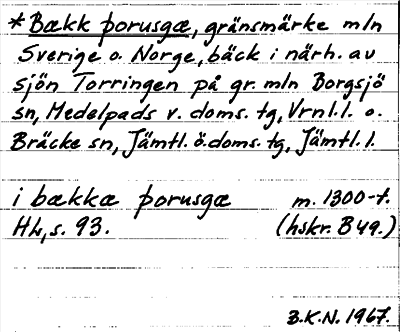 *Bækk þorusgæ, gränsmärke mln
Sverige o. Norge, bäck i närh. av
sjön Torringen på gr. mln Borgsjö
sn, Medelpads v. doms. tg, Vrnl.l. o.
Bräcke sn, Jämtl. ö. doms. tg, Jämtl. l.
i bækkæ þorusgæ m. 1300-t.
HL, s. 93. (hskr. B 49.)
B.K.N. 1967.